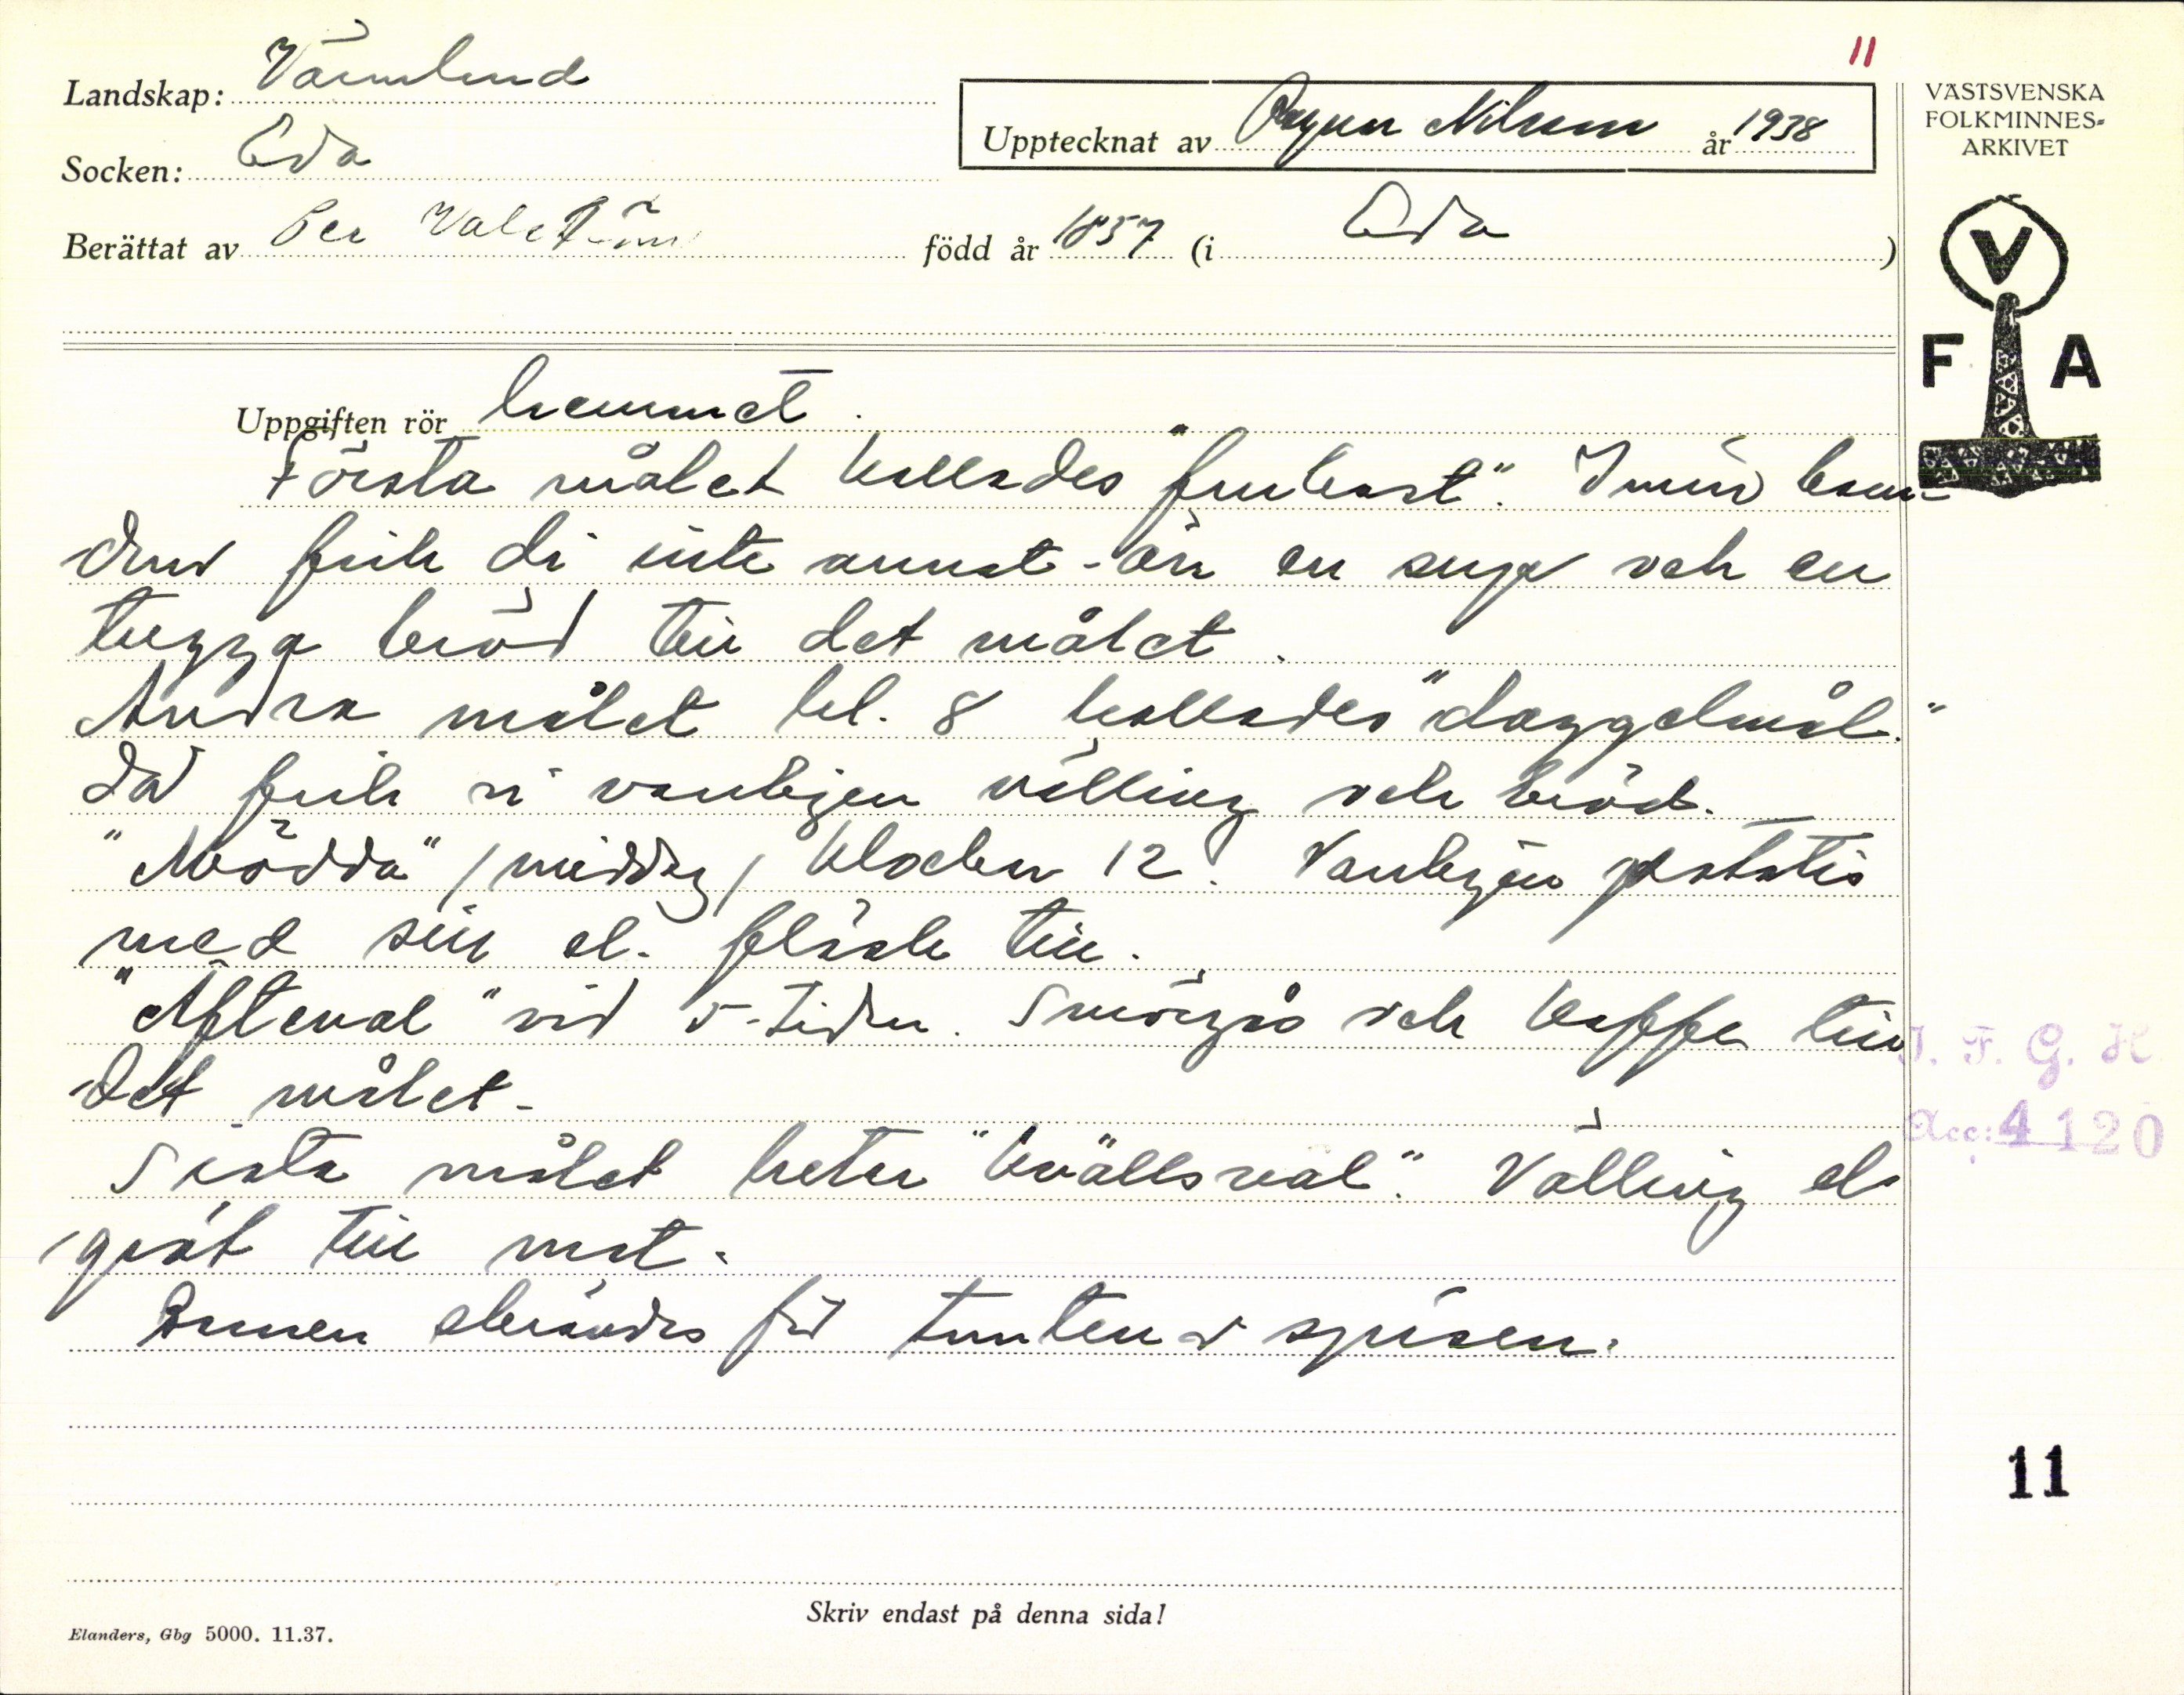 11
Landskap: Värmland
Socken: Eda
Upptecknat av Ragnar Nilsson år 1938
Berättat av Per född år 1857 (i Eda)
VÄSTSVENSKA
FOLKMINNES-
ARKIVET
V
F A
Uppgiften rör hemmet.
Första målet kallades "frukost". I min barn-
dom fick di inte annat än en sup och en
tugga bröd till det målet.
Andra målet kl. 8 kallades "daggelmål."
Då fick vi vanligen välling och bröd.
"Mödda" /middag/ klocken 12. Vanligen potatis
med sill el. fläsk till.
"Aftenval" vid 5-tiden. Smörgås och kaffe till
det målet.
Sista målet heter "kvällsval". Välling el.
gröt till mat.
för tomten i spisen.
I. F. G. H
Acc: 4120
11
Skriv endast på denna sida!
Elanders, Gbg 5000. 11.37.